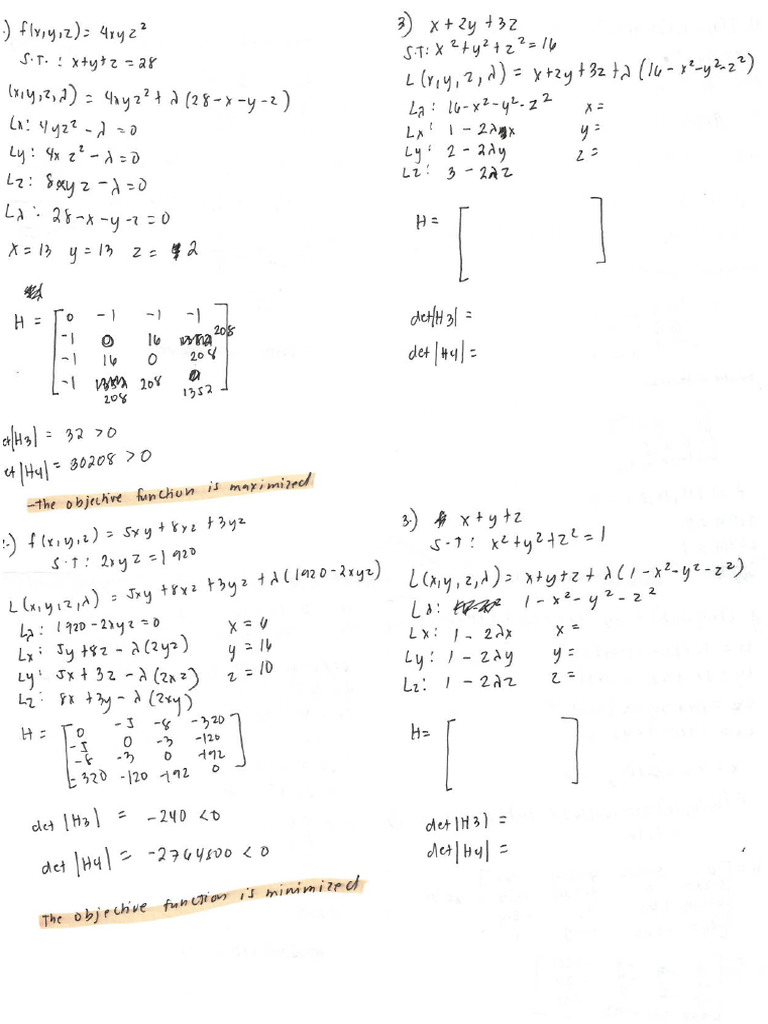 .) f(x,y,z) = 4xyz²
S.T. : x+y+z = 28
(x,y,z,λ) = 4xyz² + λ(28-x-y-z)
Lx: 4yz² - λ = 0
Ly: 4xz² - λ = 0
Lz: 8xyz - λ = 0
Lλ: 28-x-y-z = 0
x = 13 y = 13 z = 2
H = [0 -1 -1 -1
-1 0 16 208
-1 16 0 208
-1 208 208 1352]
et|H3| = 32 > 0
et|H4| = 30208 > 0
-The objective function is maximized
2.) f(x,y,z) = 5xy + 8xz + 3yz
S.T: 2xyz = 1920
L(x,y,z,λ) = 5xy + 8xz + 3yz + λ(1920-2xyz)
Lλ: 1920-2xyz = 0 x = 6
Lx: 5y + 8z - λ(2yz) y = 16
Ly: 5x + 3z - λ(2xz) z = 10
Lz: 8x + 3y - λ(2xy)
H = [0 -5 -8 -320
-5 0 -3 -120
-8 -3 0 -192
-320 -120 -192 0]
det|H3| = -240 < 0
det|H4| = -2764800 < 0
The objective function is minimized
3) x + 2y + 3z
S.T: x² + y² + z² = 16
L(x,y,z,λ) = x+2y+3z+λ(16-x²-y²-z²)
Lλ: 16-x²-y²-z² x =
Lx: 1 - 2λx y =
Ly: 2 - 2λy z =
Lz: 3 - 2λz
H = [ ]
det|H3| =
det|H4| =
3.) x + y + z
S.T: x² + y² + z² = 1
L(x,y,z,λ) = x+y+z + λ(1-x²-y²-z²)
Lλ: 1-x²-y²-z²
Lx: 1 - 2λx x =
Ly: 1 - 2λy y =
Lz: 1 - 2λz z =
H = [ ]
det|H3| =
det|H4| =